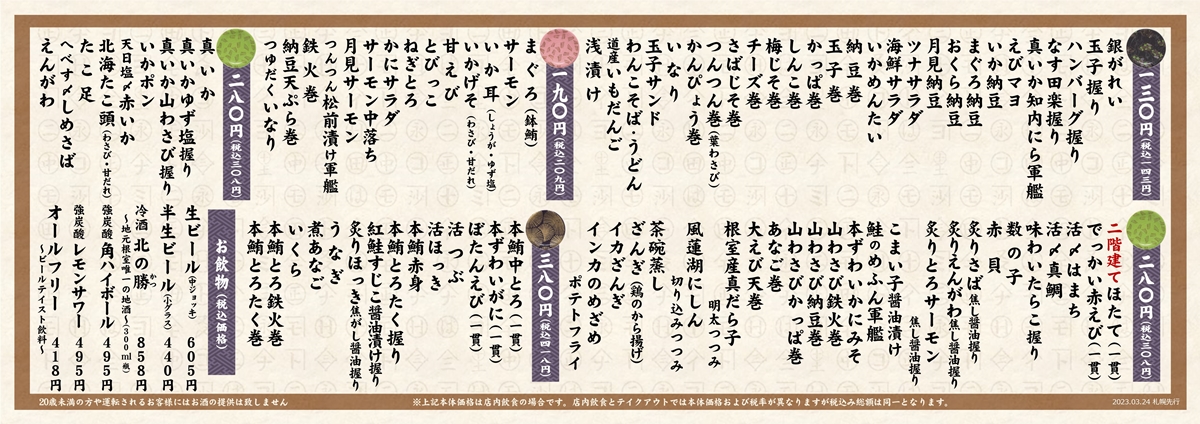 一三〇円(税込一四三円)
銀がれい
玉子握り
ハンバーグ握り
なす田楽握り
真いか知内にら軍艦
えびマヨ
いか納豆
まぐろ納豆
おくら納豆
月見納豆
ツナサラダ
海鮮サラダ
いかめんたい
納豆巻
玉子巻
かっぱ巻
しんこ巻
梅じそ巻
チーズ巻
さばじそ巻
つんつん巻(葉わさび)
かんぴょう巻
いなり
玉子サンド
わんこそば・うどん
道産いもだんご
浅漬け
一九〇円(税込二〇九円)
まぐろ(鉢鮪)
サーモン
いか耳(しょうが・ゆず塩)
いかげそ(わさび・甘だれ)
甘えび
とびっこ
ねぎとろ
かにサラダ
サーモン中落ち
月見サーモン
つんつん松前漬け軍艦
鉄火巻
納豆天ぷら巻
つゆだくいなり
二八〇円(税込三〇八円)
真いか
真いかゆず塩握り
真いか山わさび握り
いかポン
天日塩〆赤いか
北海たこ頭(わさび・甘だれ)
たこ足
へべす〆しめさば
えんがわ
二八〇円(税込三〇八円)
二階建てほたて(一貫)
でっかい赤えび(一貫)
活〆はまち
活〆真鯛
味わいたらこ握り
数の子
赤貝
炙りさば焦し醤油握り
炙りえんがわ焦し醤油握り
炙りとろサーモン
焦し醤油握り
こまい子醤油漬け
鮭のめふん軍艦
本ずわいかにみそ
山わさび鉄火巻
山わさび納豆巻
山わさびかっぱ巻
あなご巻
大えび天巻
根室産真だら子
明太つつみ
風蓮湖にしん
切り込みつつみ
茶碗蒸し
ざんぎ(鶏のから揚げ)
イカざんぎ
インカのめざめ
ポテトフライ
三八〇円(税込四一八円)
本鮪中とろ(一貫)
本ずわいがに(一貫)
ぼたんえび(一貫)
活つぶ
活ほっき
本鮪赤身
本鮪とろたく握り
紅鮭すじこ醤油漬け握り
炙りほっき焦がし醤油握り
うなぎ
煮あなご
いくら
本鮪とろ鉄火巻
本鮪とろたく巻
お飲物(税込価格)
生ビール(中ジョッキ) 605円
半生ビール(小グラス) 440円
冷酒 北の勝 858円
かつ
～地元根室唯一の地酒(300ml瓶)
強炭酸 角ハイボール 495円
強炭酸 レモンサワー 495円
オールフリー 418円
～ビールテイスト飲料～
20歳未満の方や運転されるお客様にはお酒の提供は致しません
※上記本体価格は店内飲食の場合です。店内飲食とテイクアウトでは本体価格および税率が異なりますが税込み総額は同一となります。
2023.03.24 札幌先行